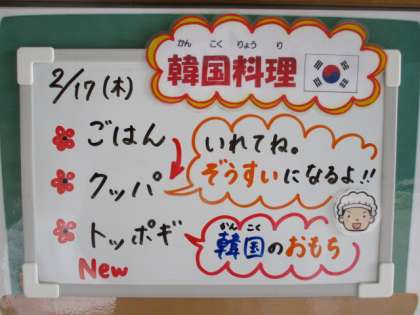 かん こく りょう り
韓国料理
2/17(木)
ごはん
いれてね。
ぞうすいになるよ!!
クッパ
トッポギ
かん こく
韓国のおもち
New